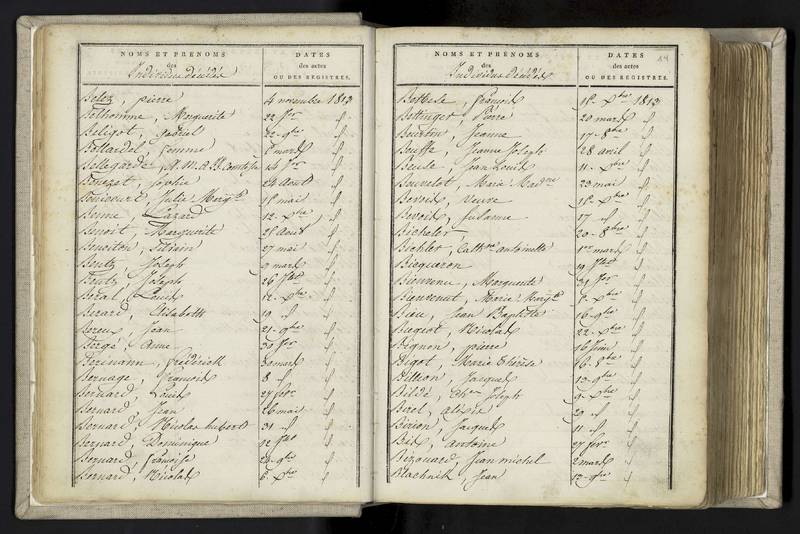 NOMS ET PRÉNOMS
des
Individus décédés
DATES
des actes
OU DES REGISTRES.
Belez, pierre 4 novembre 1813
Belhomme, Marguerite 22 fer
Beligot, gabriel 22 9bre
Bellardel, femme 1 mard
Bellegarde, A. M. 24 fer
Benezet, Sophie 24 Août
Benicourt, Julie Margte 18 mai
Benne, Lazard 12 Xbre
Benoit, Marguerite 28 Août
Benoiton, 27 mai
Bentz, Joseph 9 mard
Bentz, Joseph 26 Jbre
Beral, Louis 12 Xbre
Berard, Elisabeth 19
Bereux, Jean 21 9bre
Bergé, Anne 30 fer
Bermann, frédérick 30 mard
Bernage, francois 8
Bernard, Louis 27 fer
Bernard, Jean 26 mai
Bernard, Nicolas hubert 31
Bernard, Dominique 12
Bernard, francoise 20 9bre
Bernard, Nicolas 6 Xbre
NOMS ET PRÉNOMS
des
Individus décédés
DATES
des actes
OU DES REGISTRES.
Bettinger, Pierre 20 mard
Jeanne 17 8bre
Beuffe, Jeanne Joseph 28 avril
Beule, Jean Louis 11 Xbre
Beuvelot, Marie Madne 23 mai
veuve 18 Xbre
Bevoix, Susanne 17
Bichelet 20 8bre
Bichler, Cathne antoinette 1er mard
Bicqueron 19
Bienvenu, Marguerite 31 fer
Bienvenut, Marie Margte
Bieu, Jean Baptiste 16 9bre
Nicolas 22 Xbre
Bignon, pierre 16 Juin
Bigot, Marie thérèse 6 8bre
Jacques 13 9bre
Bildé, Joseph 9 Xbre
alexis 29
Jacques 11
Bis, antoine 27 fer
Bizouard, Jean michel 2 mard
Blachnik, Jean 13 9bre